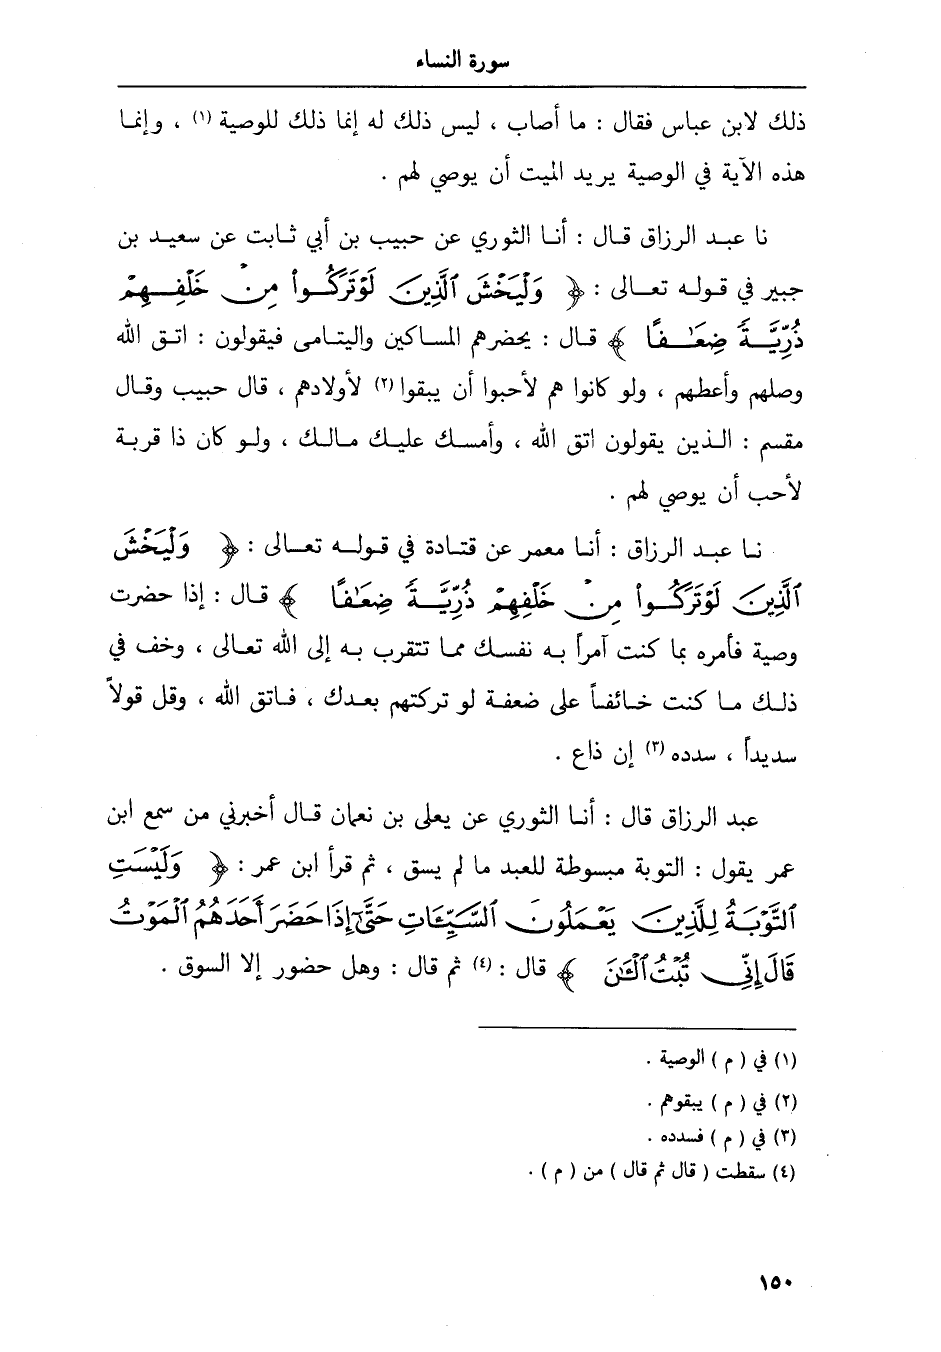 سورة النساء
ذلك لابن عباس فقال : ما أصاب ، ليس ذلك له إنما ذلك للوصية (١) ، وإنما
هذه الآية في الوصية يريد الميت أن يوصي لهم .
نا عبد الرزاق قال : أنا الثوري عن حبيب بن أبي ثابت عن سعيد بن
جبير في قوله تعالى : ﴿ وَلْيَخْشَ ٱلَّذِينَ لَوْتَرَكُوا مِنْ خَلْفِهِمْ
ذُرِّيَّةً ضِعَٰفًا ﴾ قال : يحضرهم المساكين واليتامى فيقولون : اتق الله
وصلهم وأعطهم ، ولو كانوا هم لأحبوا أن يبقوا (٢) لأولادهم ، قال حبيب وقال
مقسم : الذين يقولون اتق الله ، وأمسك عليك مالك ، ولو كان ذا قربة
لأحب أن يوصي لهم .
نا عبد الرزاق : أنا معمر عن قتادة في قوله تعالى : ﴿ وَلْيَخْشَ
ٱلَّذِينَ لَوْتَرَكُوا مِنْ خَلْفِهِمْ ذُرِّيَّةً ضِعَٰفًا ﴾ قال : إذا حضرت
وصية فأمره بما كنت آمراً به نفسك مما تتقرب به إلى الله تعالى ، وخف في
ذلك ما كنت خائفاً على ضعفة لو تركتهم بعدك ، فاتق الله ، وقل قولاً
سديداً ، سدده (٣) إن ذاع .
عبد الرزاق قال : أنا الثوري عن يعلى بن نعمان قال أخبرني من سمع ابن
عمر يقول : التوبة مبسوطة للعبد ما لم يسق ، ثم قرأ ابن عمر : ﴿ وَلَيْسَتِ
ٱلتَّوْبَةُ لِلَّذِينَ يَعْمَلُونَ ٱلسَّيِّئَاتِ حَتَّىٰٓ إِذَا حَضَرَ أَحَدَهُمُ ٱلْمَوْتُ
قَالَ إِنِّي تُبْتُ ٱلْـَٰٔنَ ﴾ قال : (٤) ثم قال : وهل حضور إلا السوق .
(١) في ( م ) الوصية .
(٢) في ( م ) يبقوهم .
(٣) في ( م ) فسدده .
(٤) سقطت ( قال ثم قال ) من ( م ) .
١٥٠